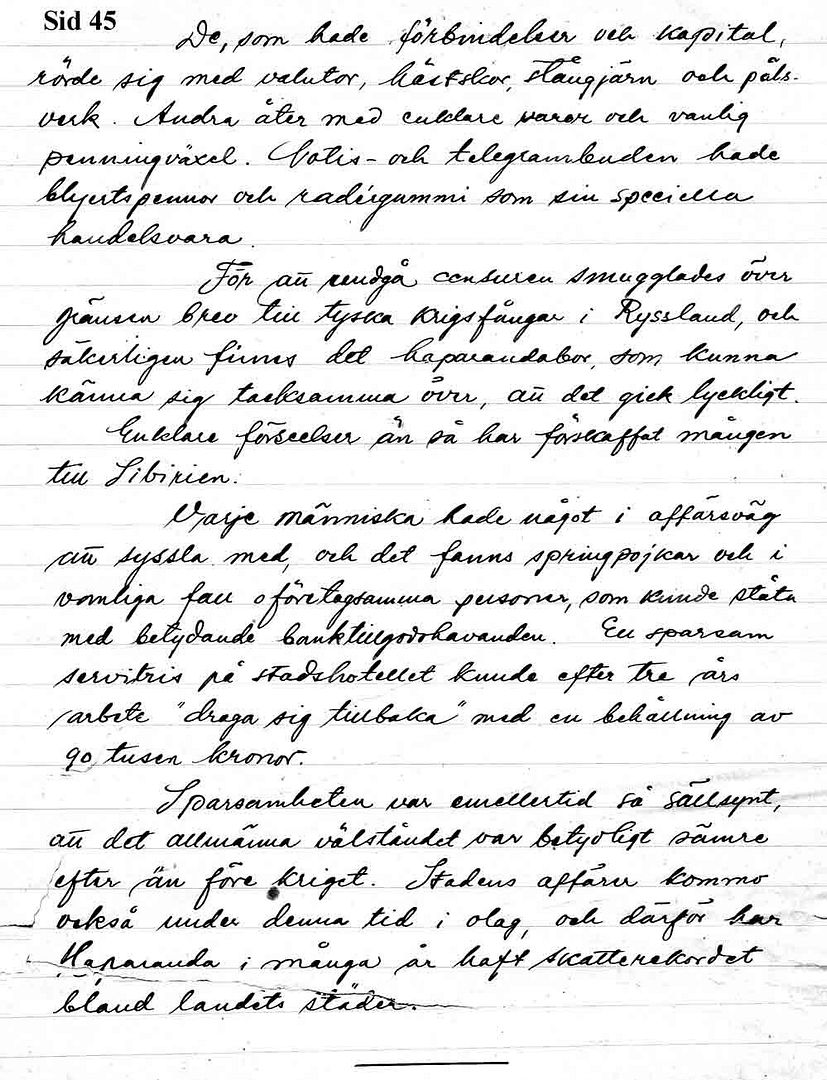 Sid 45
De, som hade förbindelser och kapital,
rörde sig med valutor, hästskor, stångjärn och päls-
verk. Andra åter med enklare varor och vanlig
penningväxel. Notis- och telegrambuden hade
blyertspennor och radérgummi som sin speciella
handelsvara.
För att undgå censuren smugglades över
gränsen brev till tyska krigsfångar i Ryssland, och
säkerligen finnes det haparandabor, som kunna
känna sig tacksamma över, att det gick lyckligt.
Enklare förseelser än så har förskaffat mången
till Sibirien.
Varje människa hade något i affärsväg
att syssla med, och det fanns springpojkar och i
vanliga fall oföretagsamma personer, som kunde ståta
med betydande banktillgodohavanden. En sparsam
servitris på stadshotellet kunde efter tre års
arbete "draga sig tillbaka" med en behållning av
90 tusen kronor.
Sparsamheten var emellertid så sällsynt,
att det allmänna välståndet var betydligt sämre
efter än före kriget. Stadens affärer kommo
också under denna tid i olag, och därför har
Haparanda i många år haft skatterekordet
bland landets städer.